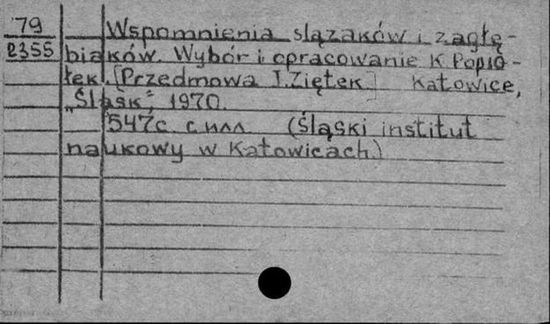 79
2355
Wspomnienia slązaków i zagłę-
biaków. Wybór i opracowanie K. Popio-
łek. [Przedmowa J. Ziętek] Katowice,
„Śląsk”, 1970.
547с. с илл. (Śląski institut
naukowy w Katowicach.)